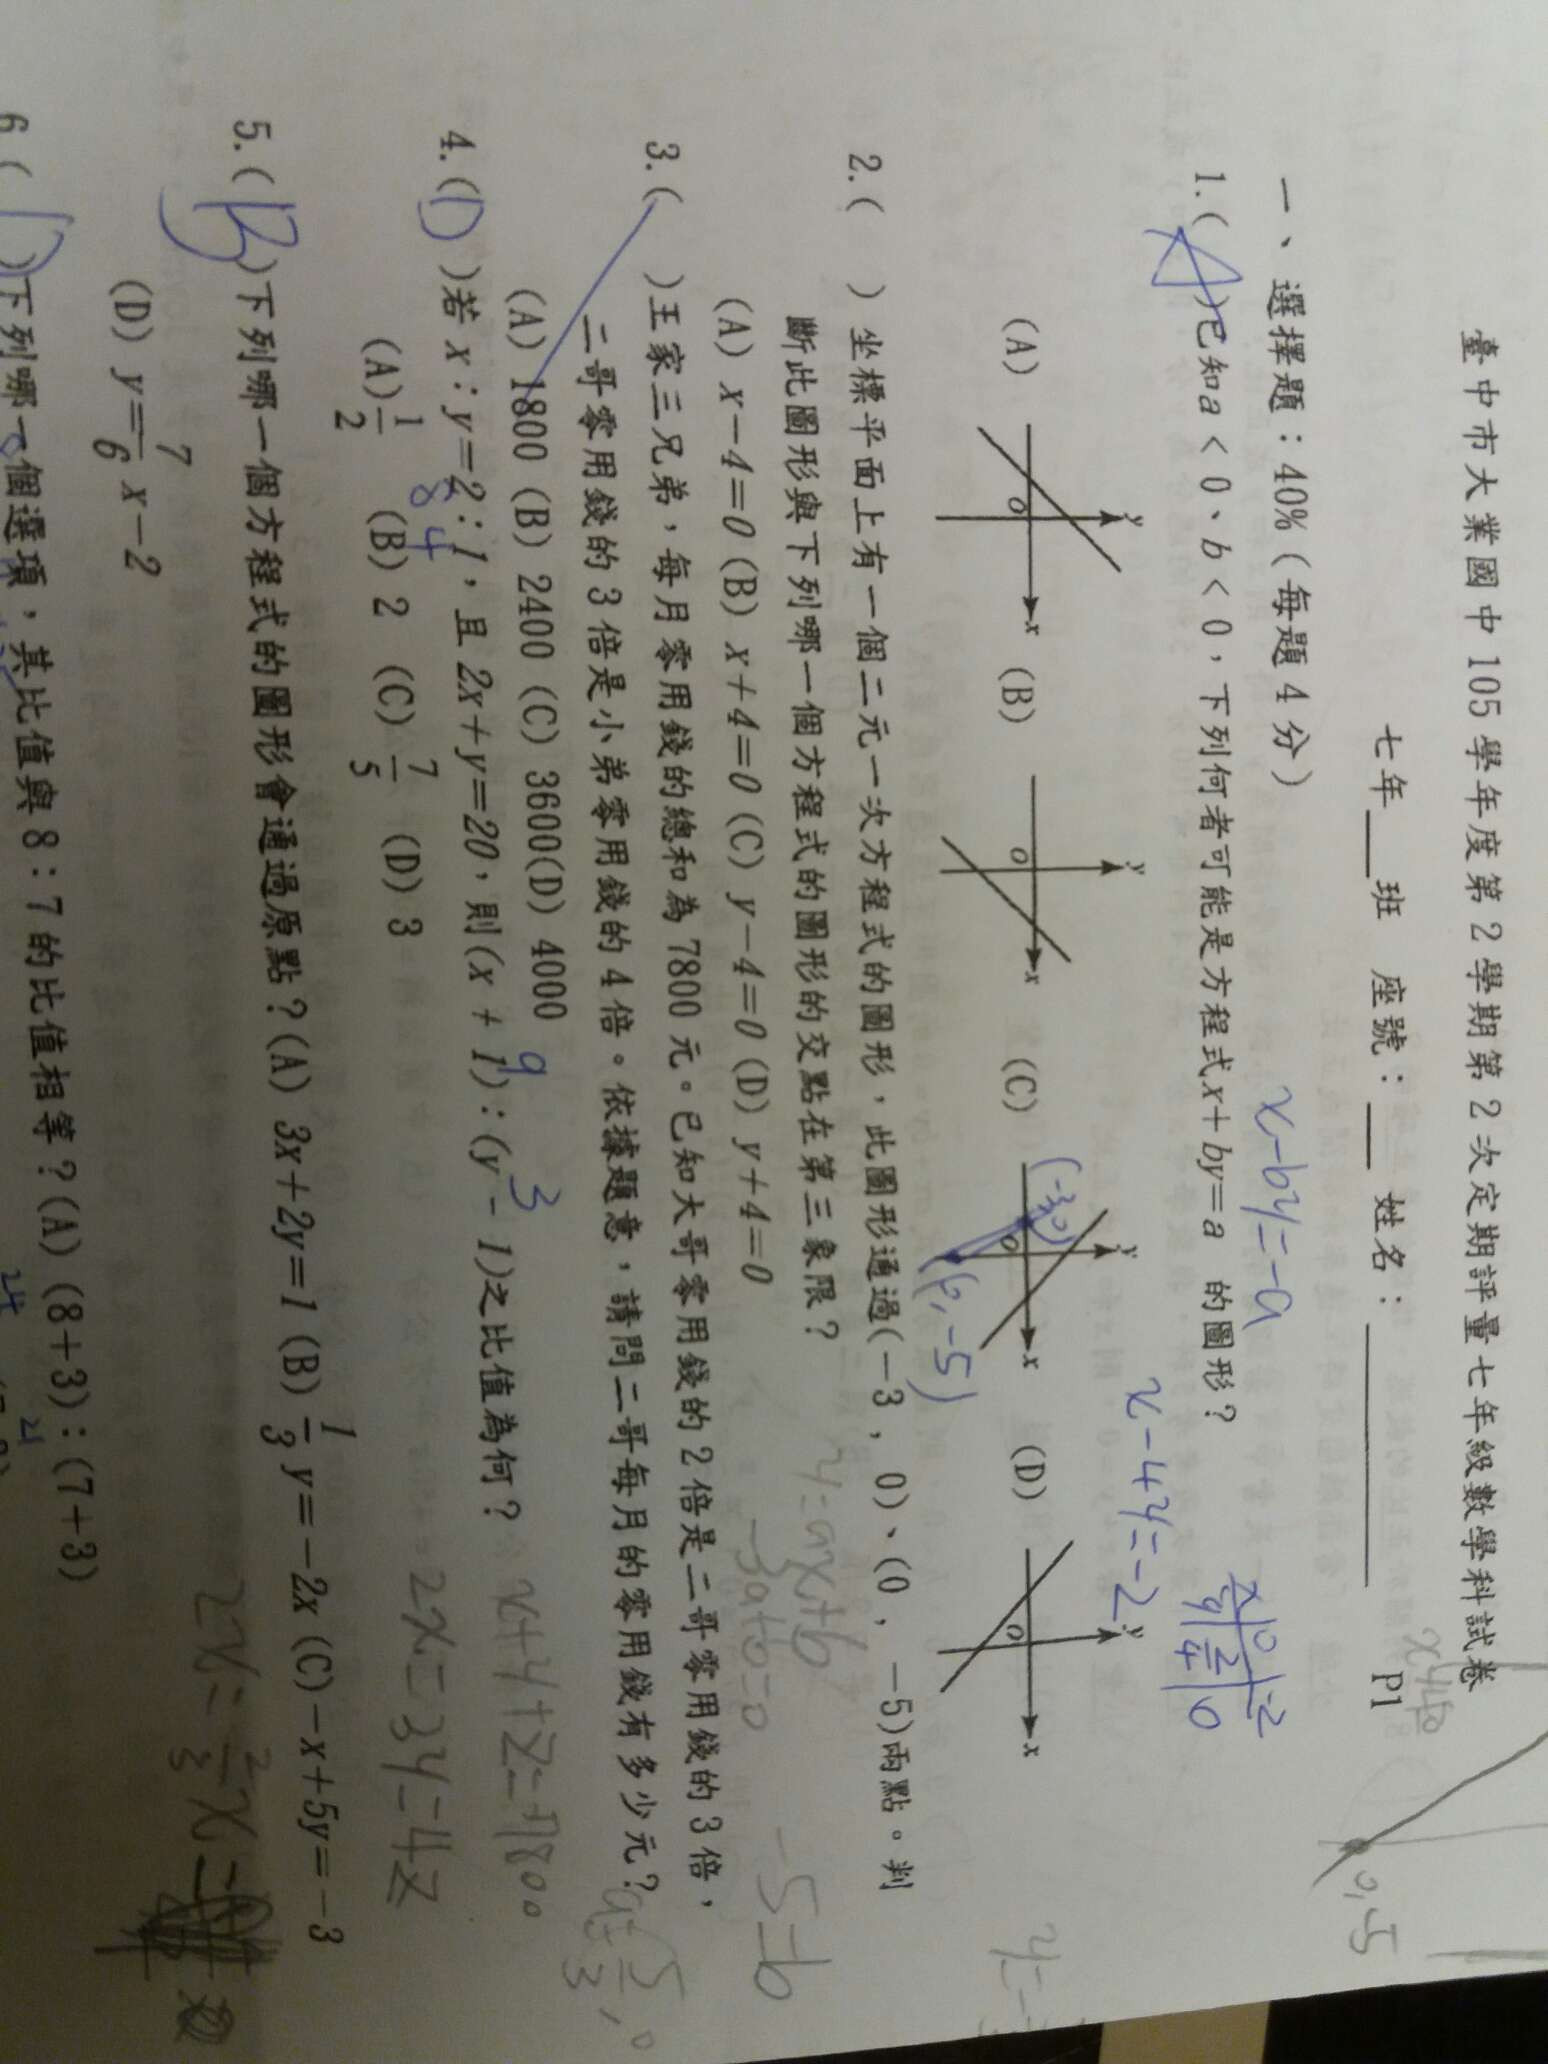 臺中市大業國中 105 學年度第 2 學期第 2 次定期評量七年級數學科試卷
七年___班 座號：___ 姓名：__________ P1
一、選擇題：40%（每題 4 分）
x-by=-a
1.( A )已知a＜0、b＜0，下列何者可能是方程式x＋by＝a 的圖形？
x 0 -2
y 2/4 0
x-4y=-2
(A) y O x (B) y O x (C) y O x (D) y O x
(-3,0)
(0,-5)
0,-5
2.( ) 坐標平面上有一個二元一次方程式的圖形，此圖形通過(－3，0)、(0，－5)兩點。判
斷此圖形與下列哪一個方程式的圖形的交點在第三象限？
(A) x－4＝0 (B) x＋4＝0 (C) y－4＝0 (D) y＋4＝0
y=ax+b
-3a+b=0
-5=b
3.( )王家三兄弟，每月零用錢的總和為 7800 元。已知大哥零用錢的 2 倍是二哥零用錢的 3 倍，
二哥零用錢的 3 倍是小弟零用錢的 4 倍。依據題意，請問二哥每月的零用錢有多少元？
(A) 1800 (B) 2400 (C) 3600(D) 4000
x+y+z=7800
2x=3y=4z
4.( D )若 x：y＝2：1，且 2x＋y＝20，則(x + 1)：(y - 1)之比值為何？
8 4 9 3
(A) 1/2 (B) 2 (C) 7/5 (D) 3
5.( B )下列哪一個方程式的圖形會通過原點？(A) 3x＋2y＝1 (B) 1/3 y＝－2x (C)－x＋5y＝－3
(D) y＝7/6 x－2
6.( )下列哪一個選項，其比值與 8：7 的比值相等？(A) (8＋3)：(7＋3)
24 21